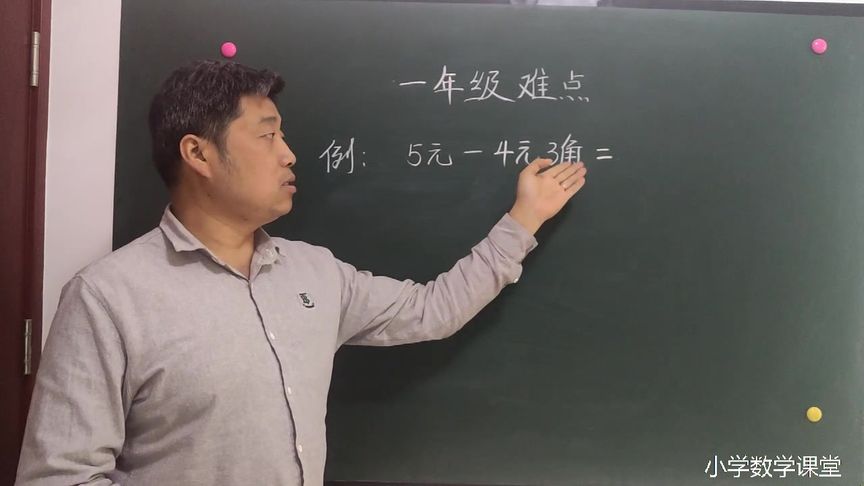 一年级难点
例：5元－4元3角＝
小学数学课堂